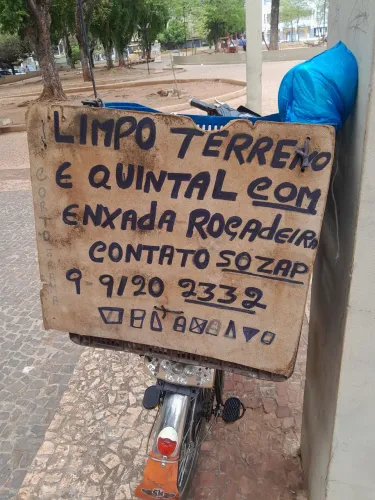 LIMPO TERRENO
E QUINTAL COM
ENXADA ROÇADEIRA
CONTATO SOZAP
9 9120 2332